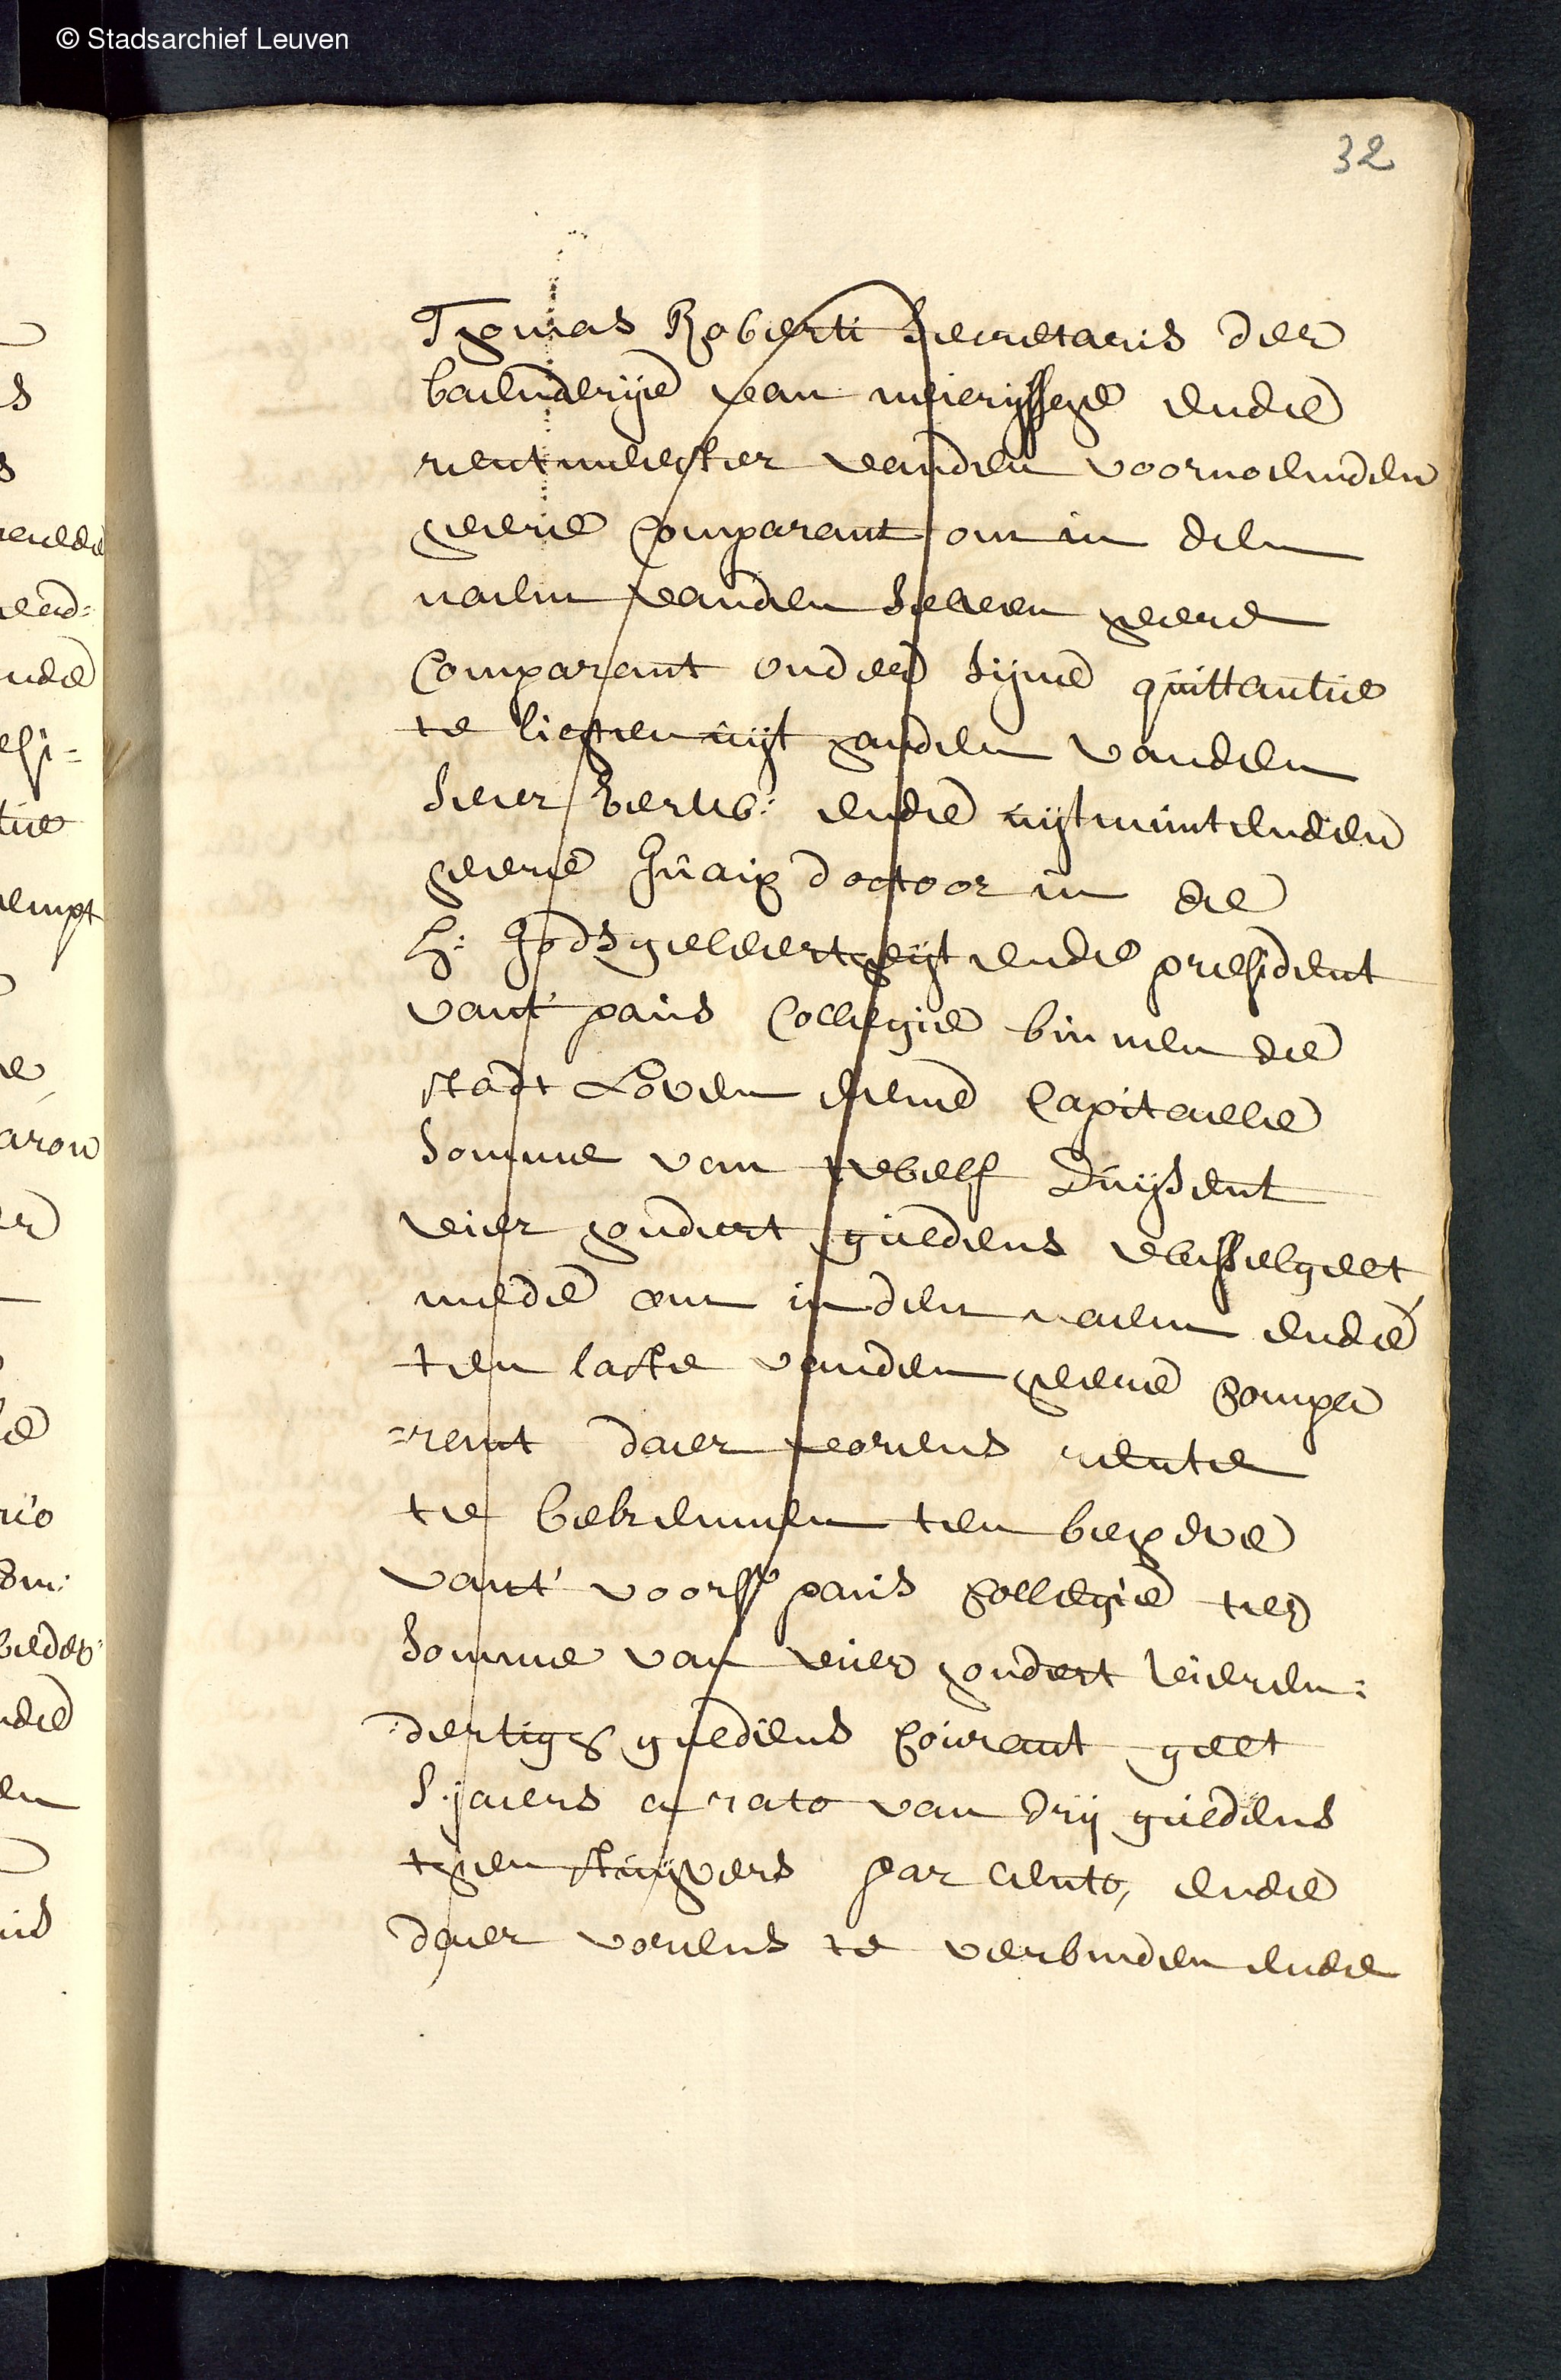 © Stadsarchief Leuven
32
Thomas Roberti Secretaris der
baenderije van meierijssche ende
rentmeester vanden voornoemden
heere Comparant om in den
naem vanden selven heere
Comparant onder sijne quittantie
te lichten uijt handen vanden
seer Eerw: ende uijtmuntenden
heere doctoor in de
H: Godtsgeleertheijt ende president
vant' paus Collegie binnen de
stadt Loven eene Capitaele
Somme van twelf duijsent
vier hondert guldens wisselgelt
mede om in den naem ende
ten laste vanden heere Compa
=rent daer vorens rente
te bekennen ten behoeve
vant' voors paus Collegie ter
Somme van vier hondert vieren:
dertigh guldens Courant gelt
s'jaers a rato van drij guldens
thien stuijvers par cento, ende
daer vorens te verbinden ende